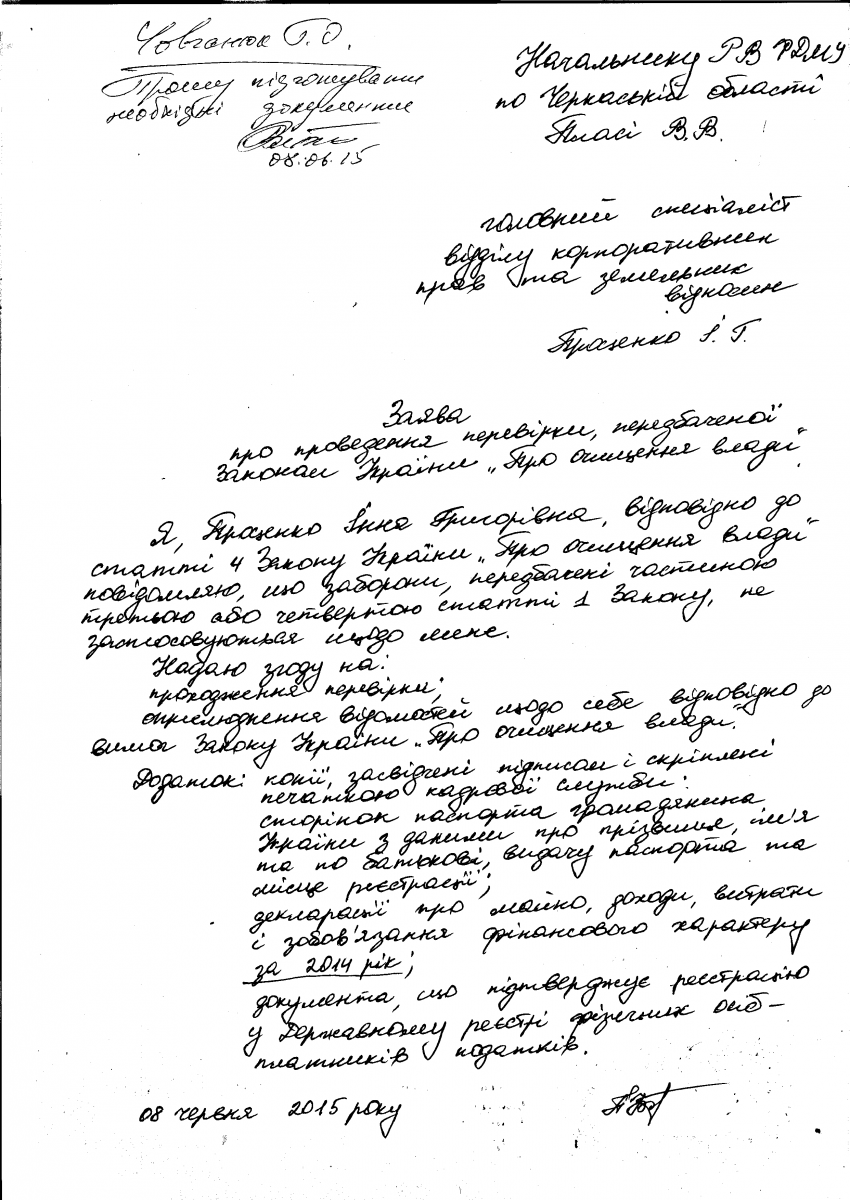 Човганюк Г.О.
Прошу підготувати
необхідні документи
08.06.15
Начальнику РВ ФДМУ
по Черкаській області
Пласі В.В.
головний спеціаліст
відділу корпоративних
прав та земельних
відносин
Проценко І.Г.
Заява
про проведення перевірки, передбаченої
Законом України „Про очищення влади"
Я, Проценко Інна Григорівна, відповідно до
статті 4 Закону України „Про очищення влади"
повідомляю, що заборони, передбачені частиною
третьою або четвертою статті 1 Закону, не
застосовуються щодо мене.
Надаю згоду на:
проходження перевірки;
оприлюднення відомостей щодо себе відповідно до
вимог Закону України „Про очищення влади".
Додаток: копії, засвідчені підписом і скріплені
печаткою кадрової служби:
сторінок паспорта громадянина
України з даними про прізвище, ім'я
та по батькові, видачу паспорта та
місце реєстрації;
декларації про майно, доходи, витрати
і зобов'язання фінансового характеру
за 2014 рік;
документа, що підтверджує реєстрацію
у Державному реєстрі фізичних осіб –
платників податків.
08 червня 2015 року